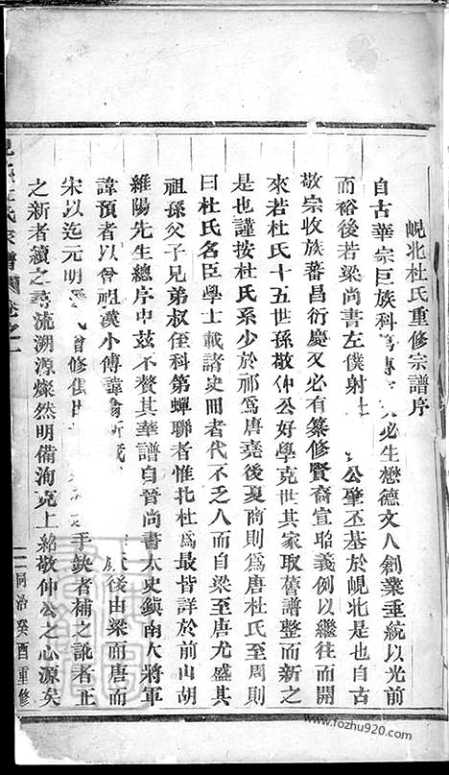 峴北杜氏重修宗譜序
自古華宗巨族科 必生懋德文人創業垂統以光前
而裕後若梁尚書左僕射 公肇丕基於峴北是也自古
敬宗收族蕃昌衍慶又必有纂修賢裔宣昭義例以繼往而開
來若杜氏十五世孫敬仲公好學克世其家取舊譜整而新之
是也謹按杜氏系少於祁為唐堯後夏商則為唐杜氏至周則
曰杜氏名臣學士載諸史冊者代不乏人而自梁至唐尤盛其
祖孫父子兄弟叔侄科第蟬聯者惟北杜為最皆詳於前山胡
維陽先生總序中玆不贅其華譜自晉尚書太史鎮南大將軍
諱預者以曾祖漢小傳諱 後由梁而唐而
宋以迄元明 修 手缺者補之訛者正
之新者續之尋流溯源燦然明備洵克上紹敬仲公之心源矣
氏宗譜 卷之一
一 同治癸酉重修
www.fozhu920.com